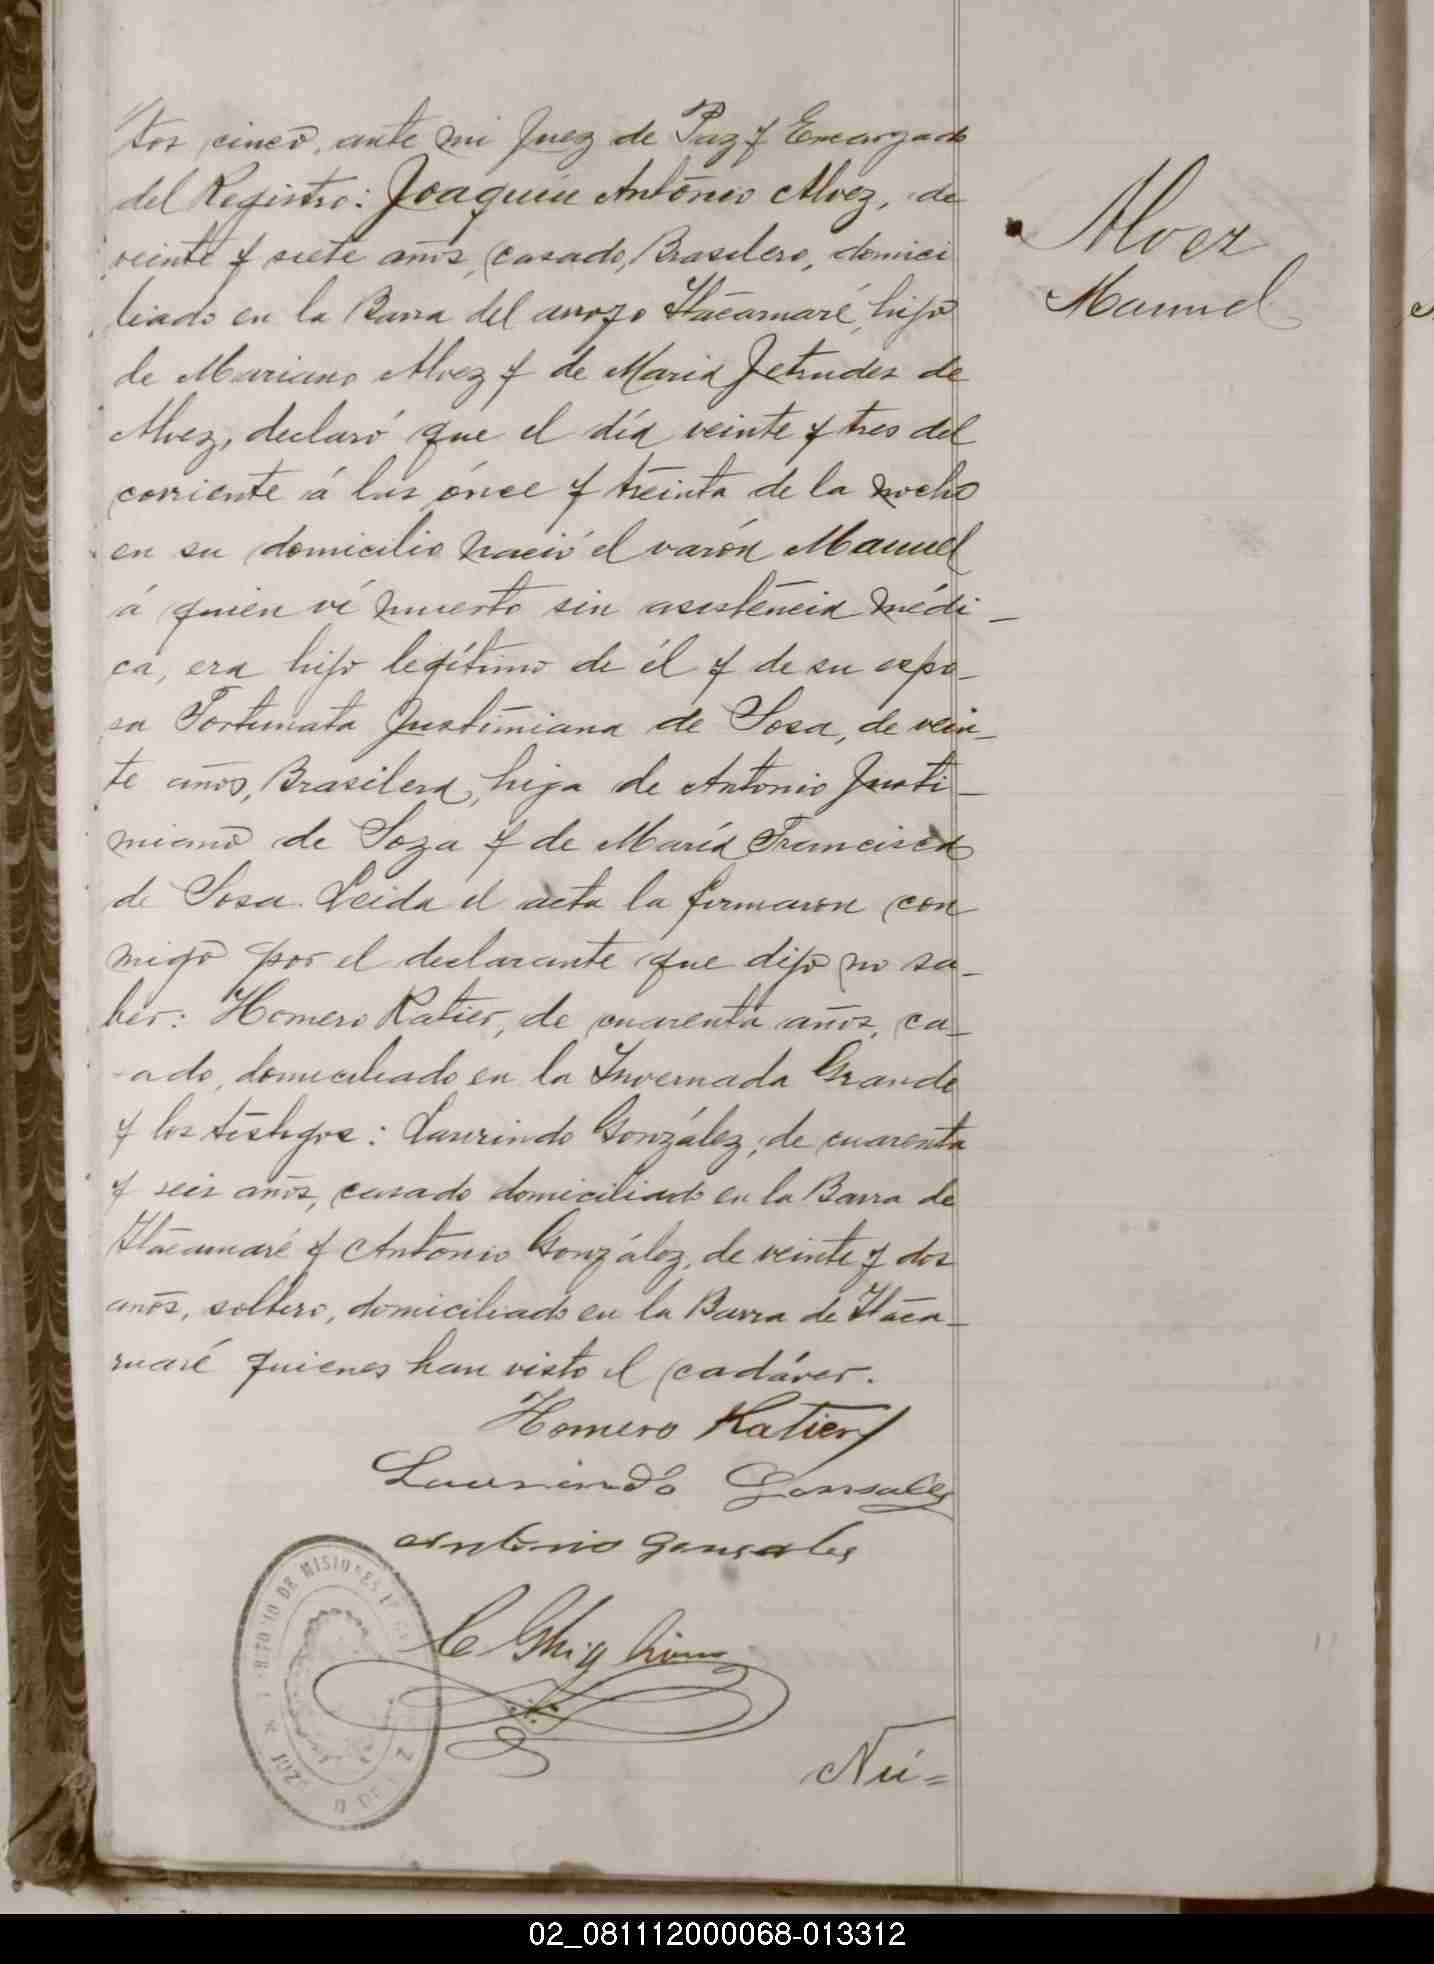 tos cinco, ante mi Juez de Paz y Encargado
del Registro: Joaquin Antonio Alvez, de
veinte y siete años, casado, Brasilero, domici
liado en la Barra del arroyo Itacamaré, hijo
de Mariano Alvez y de Maria Jetrudes de
Alvez, declaró que el día veinte y tres del
corriente á las ónce y treinta de la noche
en su domicilio nació el varón Manuel
á quien ví muerto sin asistencia médi-
ca, era hijo legítimo de él y de su espo-
sa Fortunata Justiniana de Sosa, de vein-
te años, Brasilera, hija de Antonio Justi-
niano de Soza y de María Francisca
de Sosa. Leida el acta la firmaron con
migo por el declarante que dijo no sa-
ber: Homero Ratier, de cuarenta años, ca-
ado, domiciliado en la Invernada Grande
y los testigos: Laurindo González, de cuarenta
y seis años, casado domiciliado en la Barra de
Itacamaré y Antonio González, de veinte y dos
años, soltero, domiciliado en la Barra de Itaca-
maré quienes han visto el cadáver.
Homero Ratier
Laurindo Gonsales
Antonio Gonsales
C Ghig
TORIO DE MISIONES
Nú=
Alvez
Manuel
02_081112000068-013312